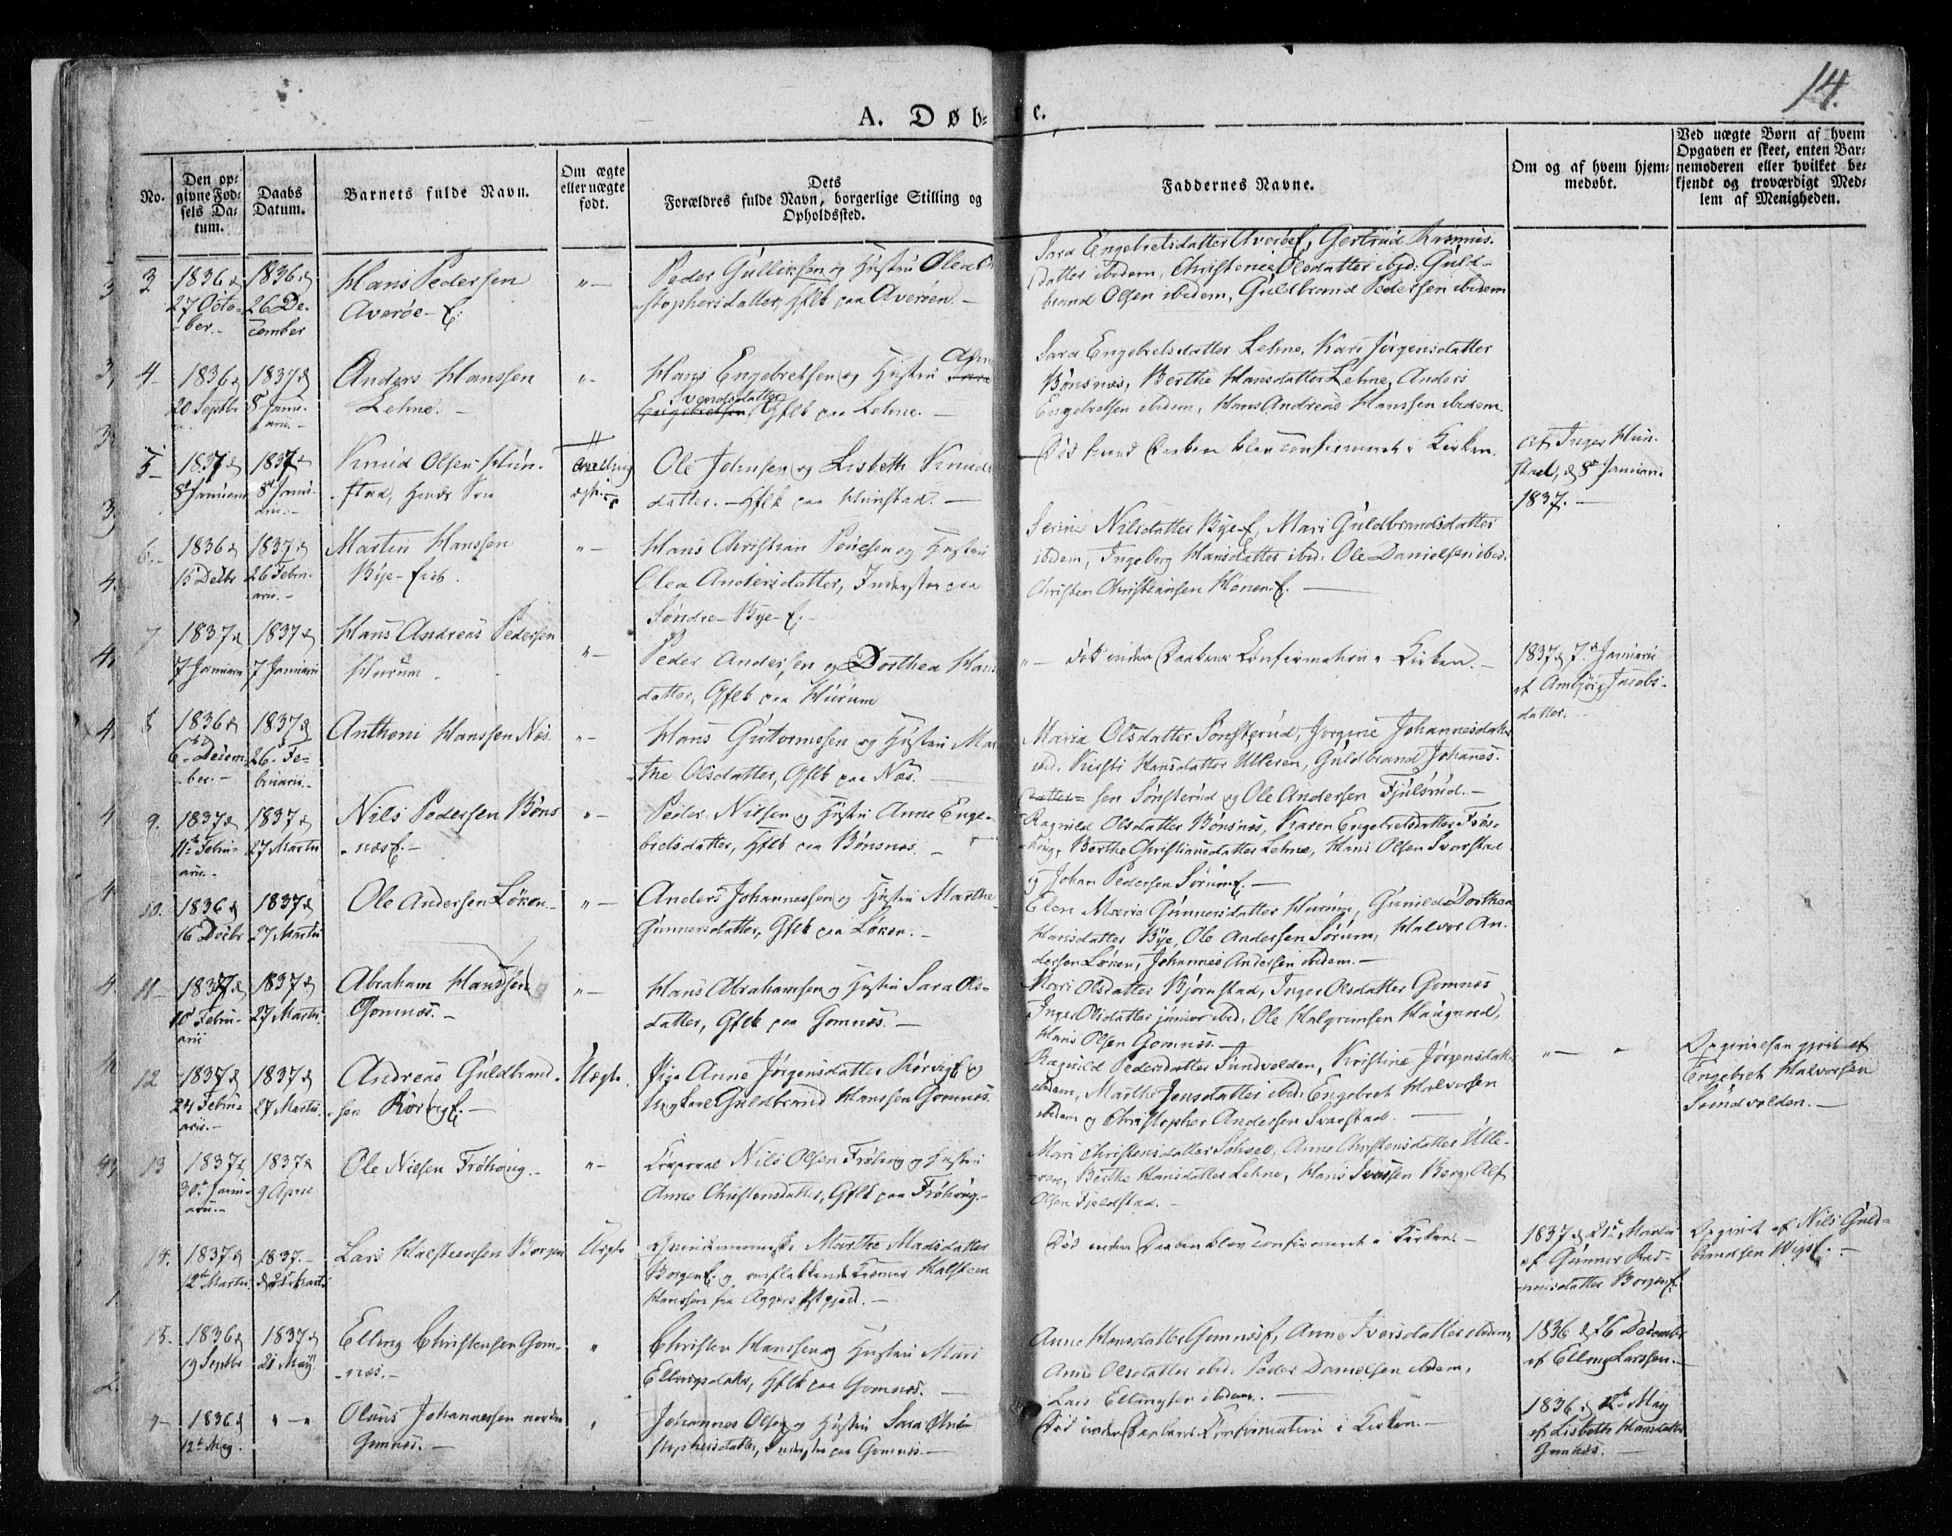 14.
A. Døb- e.
No.
Den op-
givne Fød-
sels Da-
tum.
Daabs
Datum.
Barnets fulde Navn.
Om ægte
eller uægte
født.
Dets
Forældres fulde Navn, borgerlige Stilling og
Opholdssted.
Faddernes Navne.
Om og af hvem hjem-
medøbt.
Ved uægte Børn af hvem
Opgaven er skeet, enten Bar-
nemoderen eller hvilket be-
kjendt og troværdigt Med-
lem af Menigheden.
3
1836 d
27 Octo-
ber.-
1836 d
26 De-
cember
Hans Pedersen
Averøe-E.
"-
Peder Gulliksen og Hustru Olea
stophersdatter, Gflk paa Averøen.-
Sara Engebretsdatter Averøe, Gertrud Rasmus-
datter ibidem, Christense Olsdatter ibid: Guld-
brand Olsen ibidem, Guldbrand Pedersen ibidem
4-
1836 d
20 Septbr
1837 d
8 Janu-
arii.-
Anders Hanssen
Lehne.-
"-
Hans Engebretsen og Hustru
Svendsdatter
Gflk paa Lehne.-
Sara Engebretsdatter Lehne, Kari Jørgensdatter
Bønsnæs, Berthe Hansdatter Lehne, Anders
Engebretsen ibidem, Hans Andreas Hanssen ibidem.
5-
1837 d
8 Januarii
1837 d
8 Janu-
arii.-
Knud Olsen Hun-
stad,
Ole Johnsen og Lisbeth Knuds
datter.- Gflk paa Hunstad.-
Død Daaben blev confirmeret i Kirken.
af Inger Hun-
stad, d 8 Januarii
1837.-
6.
1836 d
15 Decbr
1837 d
26 Febru-
arii.-
Martin Hanssen
Bye-eie.
"-
Hans Christian Hustru
Olea Andersdatter, Inderster paa
Søndre-Bye-E.-
Nilsdatter Bye-E, Mari Guldbrandsdatter
ibidem, Ingeborg Hansdatter ibid: Ole Danielsen ibid.
Christen Christiansen Hønen-E.-
7
1837 d
7 Januarii
1837 d
7 Januarii
Hans Andreas Pedersen
Hurum.
"-
Peder Andersen og Dorthea Hans
datter, Gflk paa Hurum
"- død inden Daabens Confirmation i Kirken.-
1837 d 7 Januarii
af Ambjør Jacobs-
datter.-
8
1836 d
6 Decem-
ber.-
1837 d
26 Fe-
bruarii.-
Anthoni Hanssen Næs.
"-
Hans Guttormsen og Hustru Mar
the Olsdatter, Gflk paa Næs.-
Maria Olsdatter Sønsterud, Jorgine Johannesdatter
ibid. Kirsti Hansdatter Ulleren, Guldbrand Johannes-
sen Sønsterud og Ole Andersen Fjulsrud.-
9.
1837 d
11 Febru-
arii.-
1837 d
27 Martii
Nils Pedersen Bøns
næsE.-
"-
Peder Nilsen og Hustru Anne Enge-
bretsdatter, Gflk paa Bønsnæs.-
Ragnild Olsdatter Bønsnæs, Karen Engebretsdatter Frøs-
houg, Berthe Christiansdatter Lehne, Hans Olsen Svarstad
og Johan Pedersen SørumE.-
10.
1836 d
16 Decbr
1837 d
27 Martii
Ole Andersen Løken-
"-
Anders Johannessen og Hustru Marthe
Gunnersdatter, Gflk paa Løken.-
Elen Marie Gunnersdatter Hurum, Gunild Dorthea
Hansdatter Bye, Ole Andersen Sørum, Halvor An-
dersen Løken, Johannes Andersen ibidem.-
11-
1837 d
10 Febru-
arii
1837 d
27 Martii.
Abraham Hanssen
Gomnæs.-
"-
Hans Abrahamsen og Hustru Sara Ols-
datter, Gflk paa Gomnæs.-
Kari Olsdatter Bjørnstad, Inger Olsdatter Gomnæs
Inger Olsdatter junior ibid. Ole Halgrimsen Haugerud,
Hans Olsen Gomnæs.-
12
1837 d
24 Febru-
arii.-
1837 d
27 Martii.
Andreas Guldbrand-
sen RørvigE.-
Uægte.
Pige Anne Jørgensdatter RørvigE og
Ungkarl Guldbrand Hanssen Gomnæs.
Ragnild Pedersdatter Sundvolden, Kristine Jørgensdatter
ibidem, Marthe Jensdatter ibid. Engebret Halvorsen
ibidem og Christopher Andersen Svarstad.-
"- "
Opgivelsen gjort af
Engebret Halvorsen
Sundvolden.-
13
1837 d
30 Janu-
arii.-
1837 d
9 April
Ole Nielsen Frøhoug.-
"-
Corporal Nils Olsen Frøhoug og Hustru
Anne Christensdatter, Gflk paa Frøhoug.-
Mari Christensdatter Anne Christensdatter Ulle-
ren, Berthe Hansdatter Lehne, Hans Berg, Alf
Olsen Fjeldstad.-
14.
1837 d
12 Martii.
1837.-
d 21 Martii
Lars Halstensen Borgen
Uægte
Marthe Madsdatter
BorgenE. og omflakkende Halsteen
Hanssen fra Aggers Præstgjæld.-
Død inden Daaben blev confirmeret i Kirken.-
1837 d 21 Martii
af Gunnor Ras-
musdatter BorgenE.
Opgivet af Nils Guld-
brandsen -
15.
1836 d
19 Septbr
1837 d
21 May
Elling Christensen Gom-
næs.-
"
Christen Hanssen og Hustru Mari
Ellingsdatter, Gflk paa Gomnæs.-
Anne Hansdatter GomnæsE, Anne Iversdatter ibidem,
Anne Olsdatter ibid. Peder Danielsen ibidem,
Lars Ellingsen ibidem.-
1836 d 26 December
af Elling Larssen.-
"-
1836 d
12 May.
"-"
Olaus Johannessen nordre
Gomnæs.-
"
Johannes Olsen og Hustru Sara Chri
stophersdatter, Inderster paa Gomnæs.-
Død inden Daabens Confirmation i Kirken.-
1836, d 12 May
af Lisbeth Hansdatter
Gomnæs.-